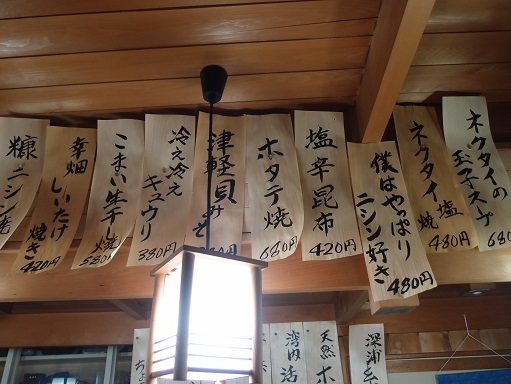 ネクタイの
玉子スープ
680
ネクタイ塩
焼
480円
僕はやっぱり
ニシン好き
480円
塩辛昆布
420円
ホタテ焼
680円
津軽貝みそ
冷え冷え
キュウリ
380円
こまい生干し焼
580円
幸畑
しいたけ焼き
420円
糠ニシン
深浦
天然ホ
湾内活